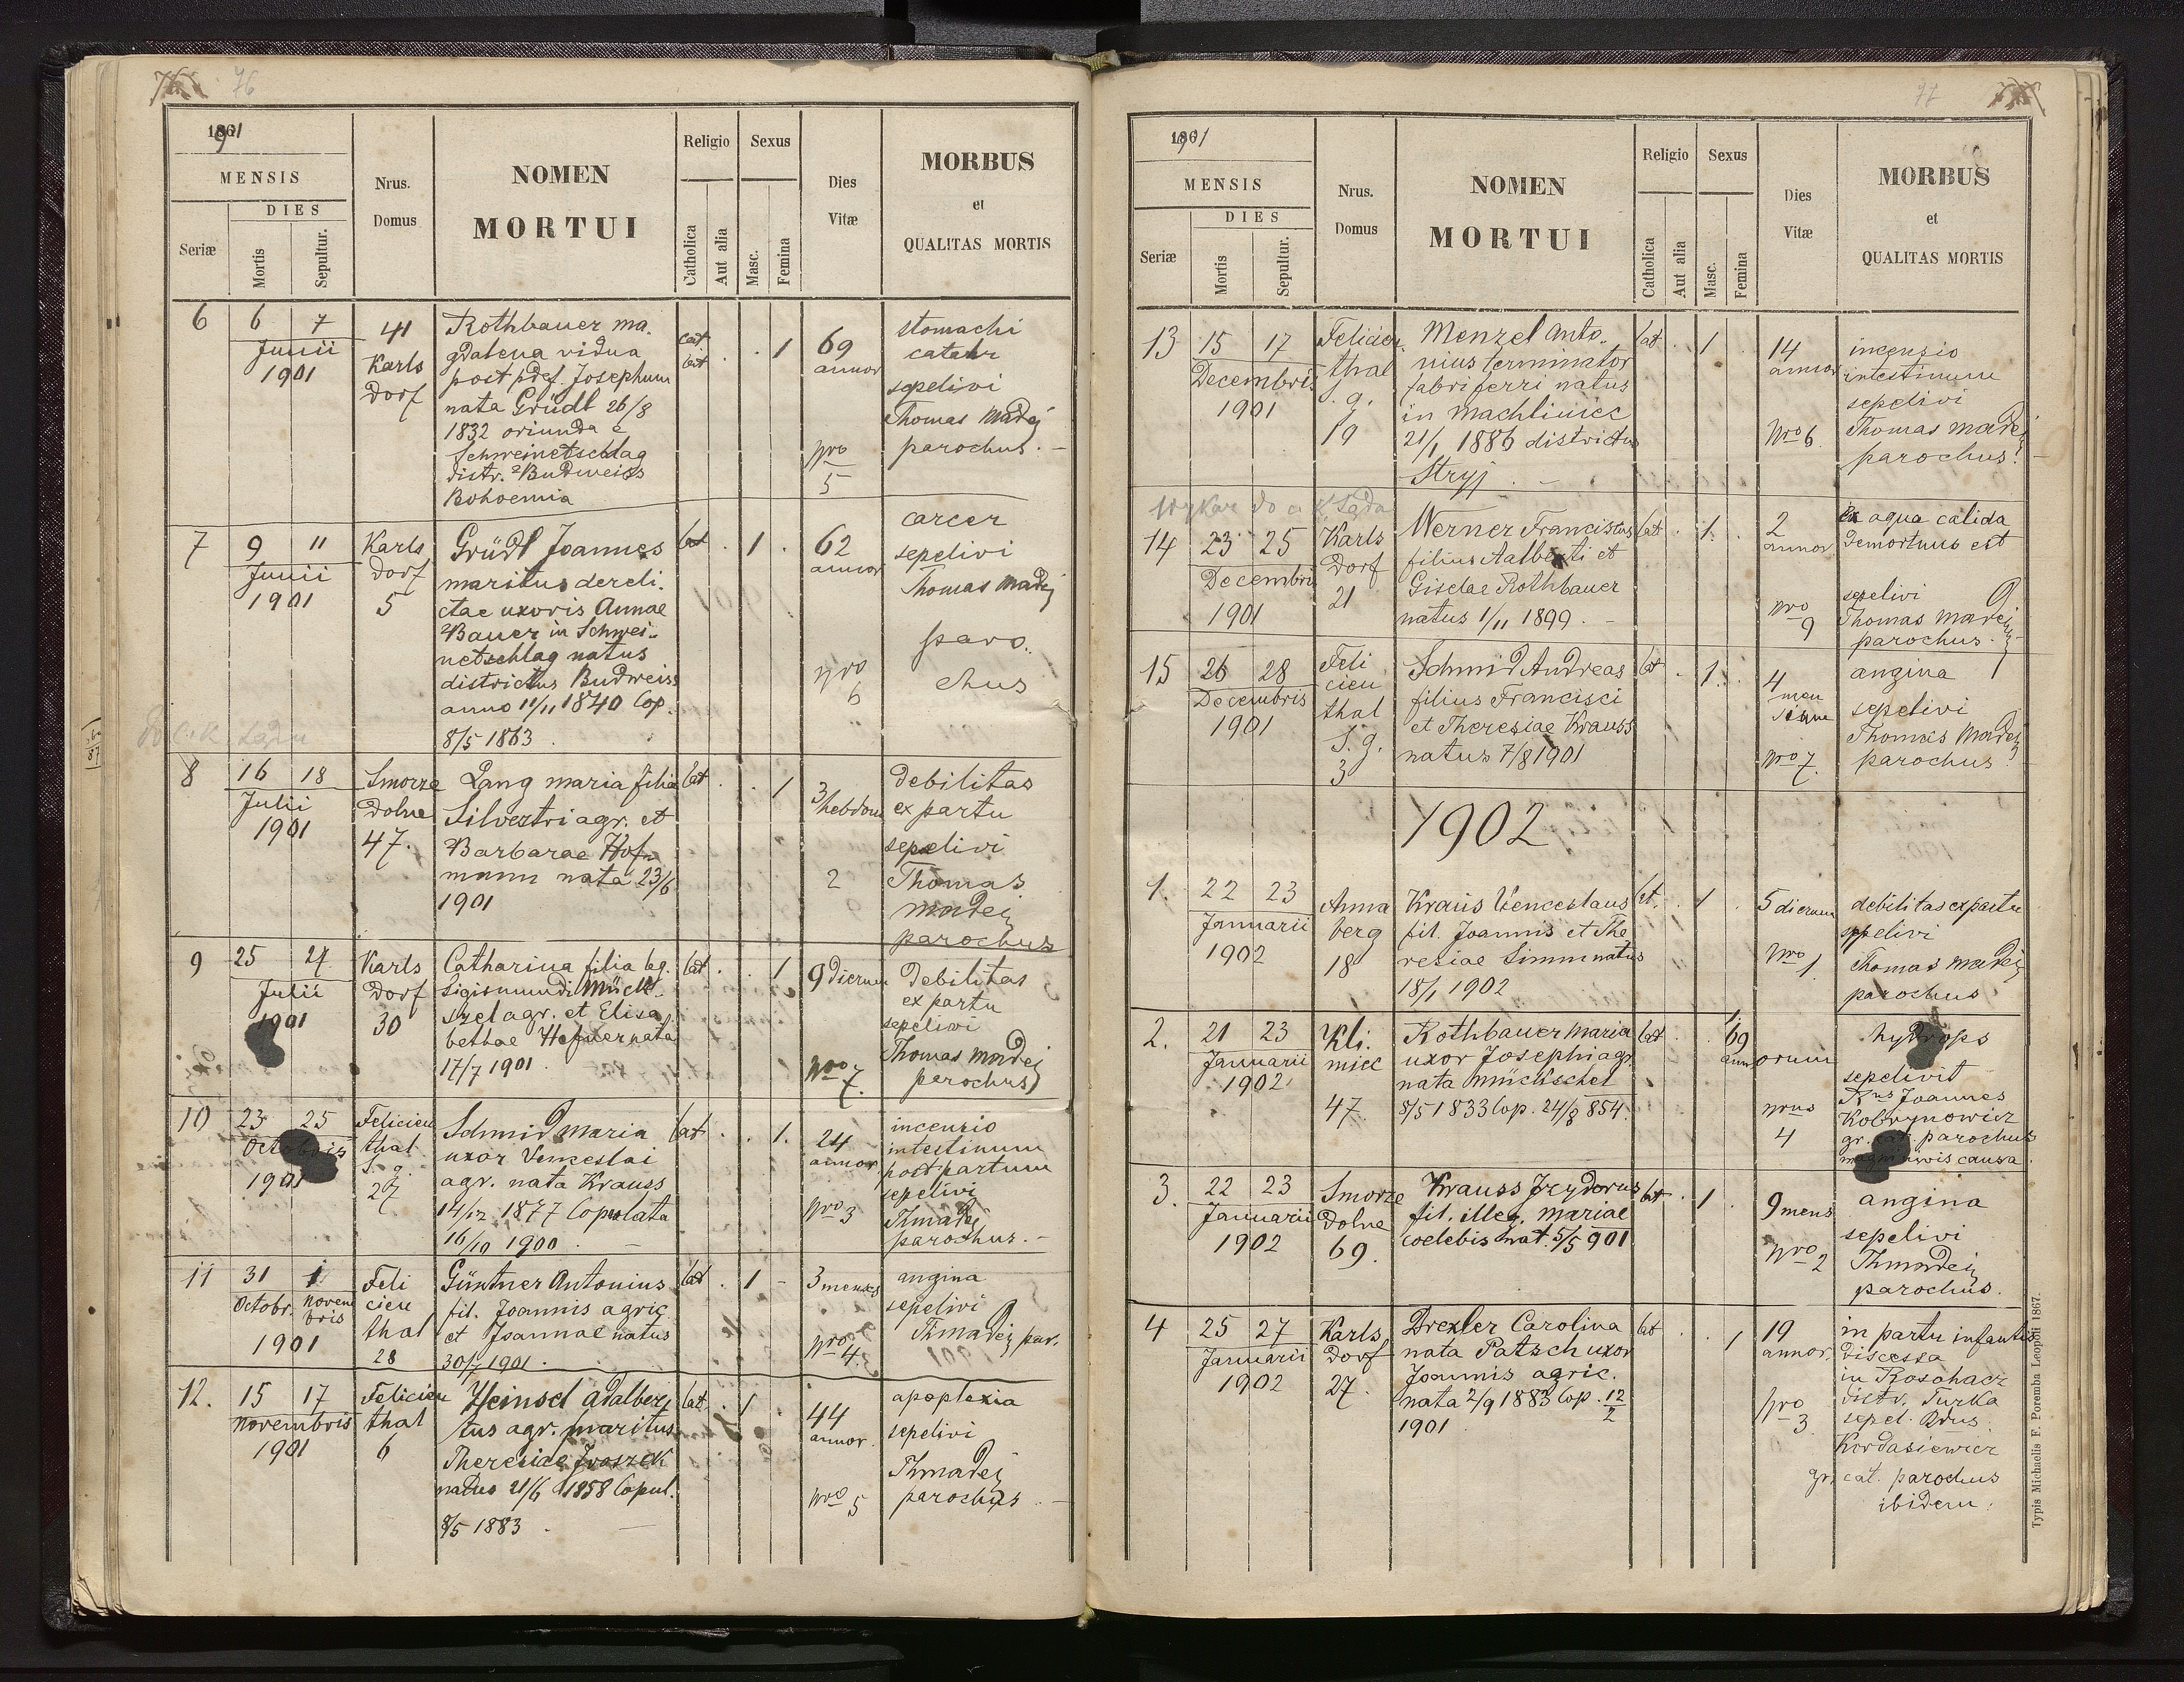 76
1901
MENSIS
DIES
Seriæ
Mortis
Sepultur.
Nrus.
Domus
NOMEN
MORTUI
Religio
Catholica
Aut alia
Sexus
Masc.
Femina
Dies
Vitæ
MORBUS
et
QUALITAS MORTIS
6
6 7
Junii
1901
41
Karls
dorf
Rothbauer Ma.
gdalena vidua
post pdef. Josephum
nata Gründl 26/8
1832 oriunda e
Schweinetschlag
distr. Budweiss
Bohoemia
cat
lat
1
69
annor
Nro
5
stomachi
catahr
sepelivi
Thomas Madej
parochus. -
7
9 11
Junii
1901
Karls
dorf
5
Gründl Joannes
maritus dereli.
ctae uxoris Annae
Bauer in Schwei..
netschlag natus
districtus Budweiss
anno 11/11 1840 Cop.
8/5 1863
lat
1
62
annor
Nro
6
carcer
sepelivi
Thomas Madej
paro..
chus
do c. k. Sądu
8
16 18
Julii
1901
Smorze
dolne
47.
Lang Maria filia
Silvestri agr. et
Barbarae Hof..
mann nata 23/6
1901
lat
1
3/hebdom
2
debilitas
ex partu
sepelivi
Thomas
Madej
parochus
9
25 27
Julii
1901
Karls
dorf
30
Catharina filia leg.
Sigismundi Mück..
szel agr. et Elisa
bethae Hefner nata
17/7 1901.
lat
1
9 dierum
Nro 7.
debilitas
ex partu
sepelivi
Thomas Madej
parochus
10
23 25
Octobris
1901
Felicien
thal
S. g.
27
Schmid Maria
uxor Venceslai
agr. nata Krauss
14/12 1877 Copulata
16/10 1900.
lat
1.
24
annor.
Nro 3
incensio
intestinum
post partum
sepelivi
ThMadej
parochus. -
11
31 1
Octobr. Novem
bris
1901
Feli
cien
thal
28
Güntner Antonius
fil. Joannis agric
et Joannae natus
30/7 1901.
lat
1
3 menses
Nro 4.
angina
sepelivi
ThMadej par.
12.
15 17
Novembris
1901
Felicien
thal
6
Heinsel Adalber,
tus agr. maritus
Theresiae Iroszek
natus 21/6 1858 Copul.
8/5 1883.
lat.
1
44
annor.
Nro 5
apoplexia
sepelivi
ThMadej
parochus. -
77
1901
MENSIS
DIES
Seriæ
Mortis
Sepultur.
Nrus.
Domus
NOMEN
MORTUI
Religio
Catholica
Aut alia
Sexus
Masc.
Femina
Dies
Vitæ
MORBUS
et
QUALITAS MORTIS
13
15 17
Decembris
1901
Felicien
thal
S. g.
19
Menzel Anto..
nius terminator
fabri ferri natus
in Machliniec
21/1 1886 districtus
Stryj. -
lat
1
14
annor
Nro 6.
incensio
intestinum
sepelivi
Thomas Madej
parochus.
wykaz do c. k. Sądu
14
23 25
Decembris
1901
Karls
dorf
21
Werner Franciscus
filius Adalberti et
Giselae Rothbauer
natus 1/11 1899. -
lat
1.
2
annor
Nro
9
Ex aqua calida
demortuus est
sepelivi
Thomas Madej
parochus.
15
26 28
Decembris
1901
Feli
cien
thal
S. g.
3
Schmid Andreas
filius Francisci
et Theresiae Krauss
natus 7/8 1901
lat
1.
4
men
sium
Nro 7.
angina
sepelivi
Thomas Madej
parochus
1902
1.
22 23
Januarii
1902
Anna
berg
18
Kraus Venceslaus
fil. Joannis et The
resiae Simm natus
18/1 1902
lat.
1
5 dierum
Nro 1.
debilitas ex partu
sepelivi
Thomas Madej
parochus
2.
21 23
Januarii
1902
Kli.
miec
47
Rothbauer Maria
uxor Josephi agr.
nata Mückschel
8/5 1833 Cop. 24/8 854.
lat
1.
69
annorum
Nrus
4
hydrops
sepelivit
Rus Joannes
Kobrynowicz
gr. cat. parochus
causa
3.
22 23
Januarii
1902
Smorze
dolne
69.
Krauss Izydorus
fil. illeg. Mariae
coelebis nat. 5/5 901
lat
1
9 mens
Nro 2
angina
sepelivi
ThMadej
parochus.
4
25 27
Januarii
1902
Karls
dorf
27.
Drexler Carolina
nata Patsch uxor
Joannis agric.
nata 2/9 1883 Cop. 12/2
1901
lat
1
19
annor.
Nro
3
in partu infantis
discessa
in Rosohacz
distr. Turka
sepel. Rdus.
Kordasiewicz
gr. cat. parochus
ibidem.
Typis Michaelis F. Poremba Leopoli 1867.